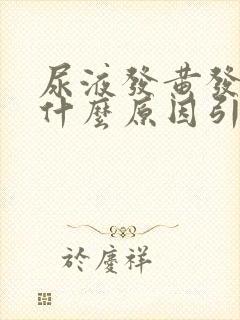 尿液發黃發
什麼原因引
於慶祥